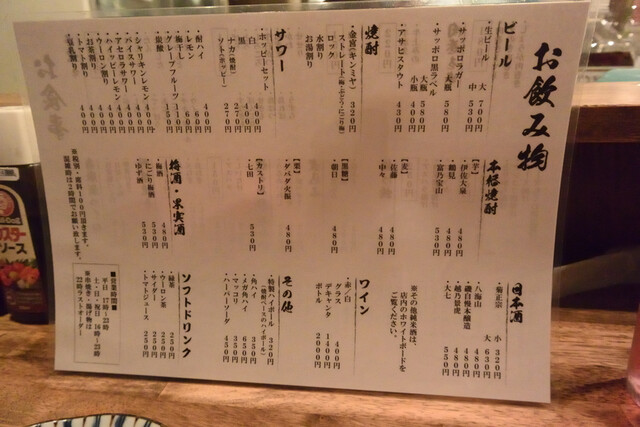 お飲み物
ビール
・生ビール 大 700円
中 530円
・サッポロラガー 大瓶 580円
・サッポロ黒ラベル 大瓶 580円
小瓶 400円
・アサヒスタウト 430円
焼酎
・金宮(キンミヤ) 320円
ストレート(梅・ぶどう
ロック
水割り
お湯割り
サワー
・ホッピーセット
白 400円
黒 400円
ナカ(焼酎) 270円
ソト(ホッピー) 270円
・酎ハイ 400円
・レモン 60円
・梅干し 110円
・グレープフルーツ 160円
・炭酸 150円
・シャリキンレモン 400円
・バイスサワー 400円
・アセロラサワー 400円
・ハイッピーレモン 400円
・ウーロン割り 400円
・お茶割り 400円
・トマト割り 400円
・豆乳割り 400円
本格焼酎
【芋】
・伊佐大泉 480円
・鶴見 480円
・富乃宝山 530円
【麦】
・佐藤 480円
・中々 480円
【黒糖】
・朝日 480円
【栗】
・ダバダ火振 480円
【カストリ】
・七田 530円
梅酒・果実酒
・梅酒 480円
・にごり梅酒 530円
・ゆず酒 530円
※視聴
混雑時は2時間でお願い致します。
日本酒
・菊正宗 小 320円
大 630円
・八海山 480円
・磯自慢本醸造 480円
・越乃景虎 480円
・大七 570円
※その他純米酒は、
店内のホワイトボードを
ご覧ください。
ワイン
・赤/白
グラス 400円
デキャンタ 1400円
ボトル 2000円
その他
・特製ハイボール 320円
(焼酎ベースのハイボール)
・角ハイ 350円
・メガ角ハイ 650円
・マッコリ 350円
・ハーバーソーダ 450円
ソフトドリンク
・緑茶 250円
・ウーロン茶 250円
・サイダー 250円
・トマトジュース 250円
■営業時間■
平日 17時～23時
土・日・祝 16時～23時
※串焼き・揚げ物は
22時ラストオーダー
スター
ソース